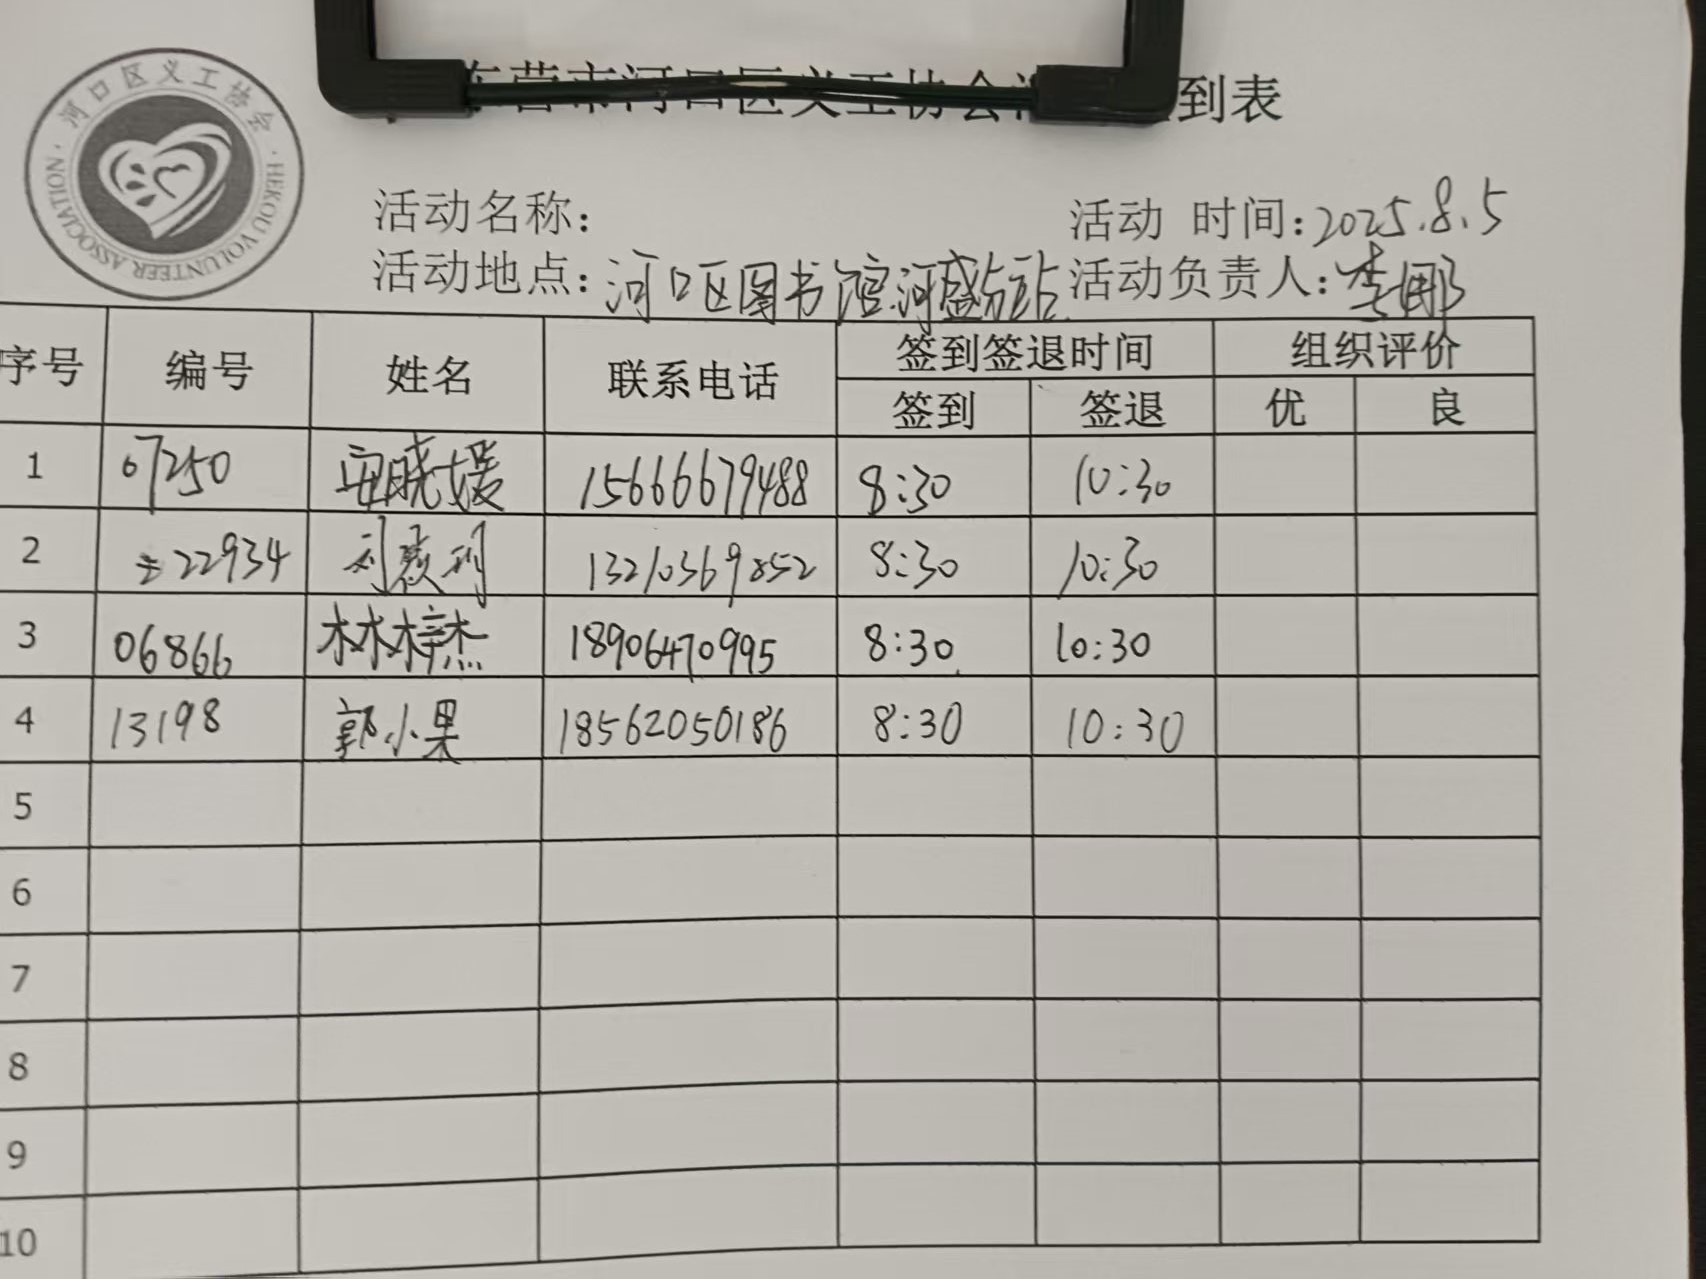 东营市河口区义工协会活 到表
河口区义工协会
HEKOU VOLUNTEER ASSOCIATION
活动名称： 活动 时间：2025.8.5
活动地点：河口区图书馆河盛分站 活动负责人：李娜
序号 编号 姓名 联系电话 签到签退时间 组织评价
签到 签退 优 良
1 07250 安晓媛 15666679488 8:30 10:30
2 22934 刘 利 13210369852 8:30 10:30
3 06866 林梓杰 18906470995 8:30 10:30
4 13198 郭小果 18562050186 8:30 10:30
5
6
7
8
9
10